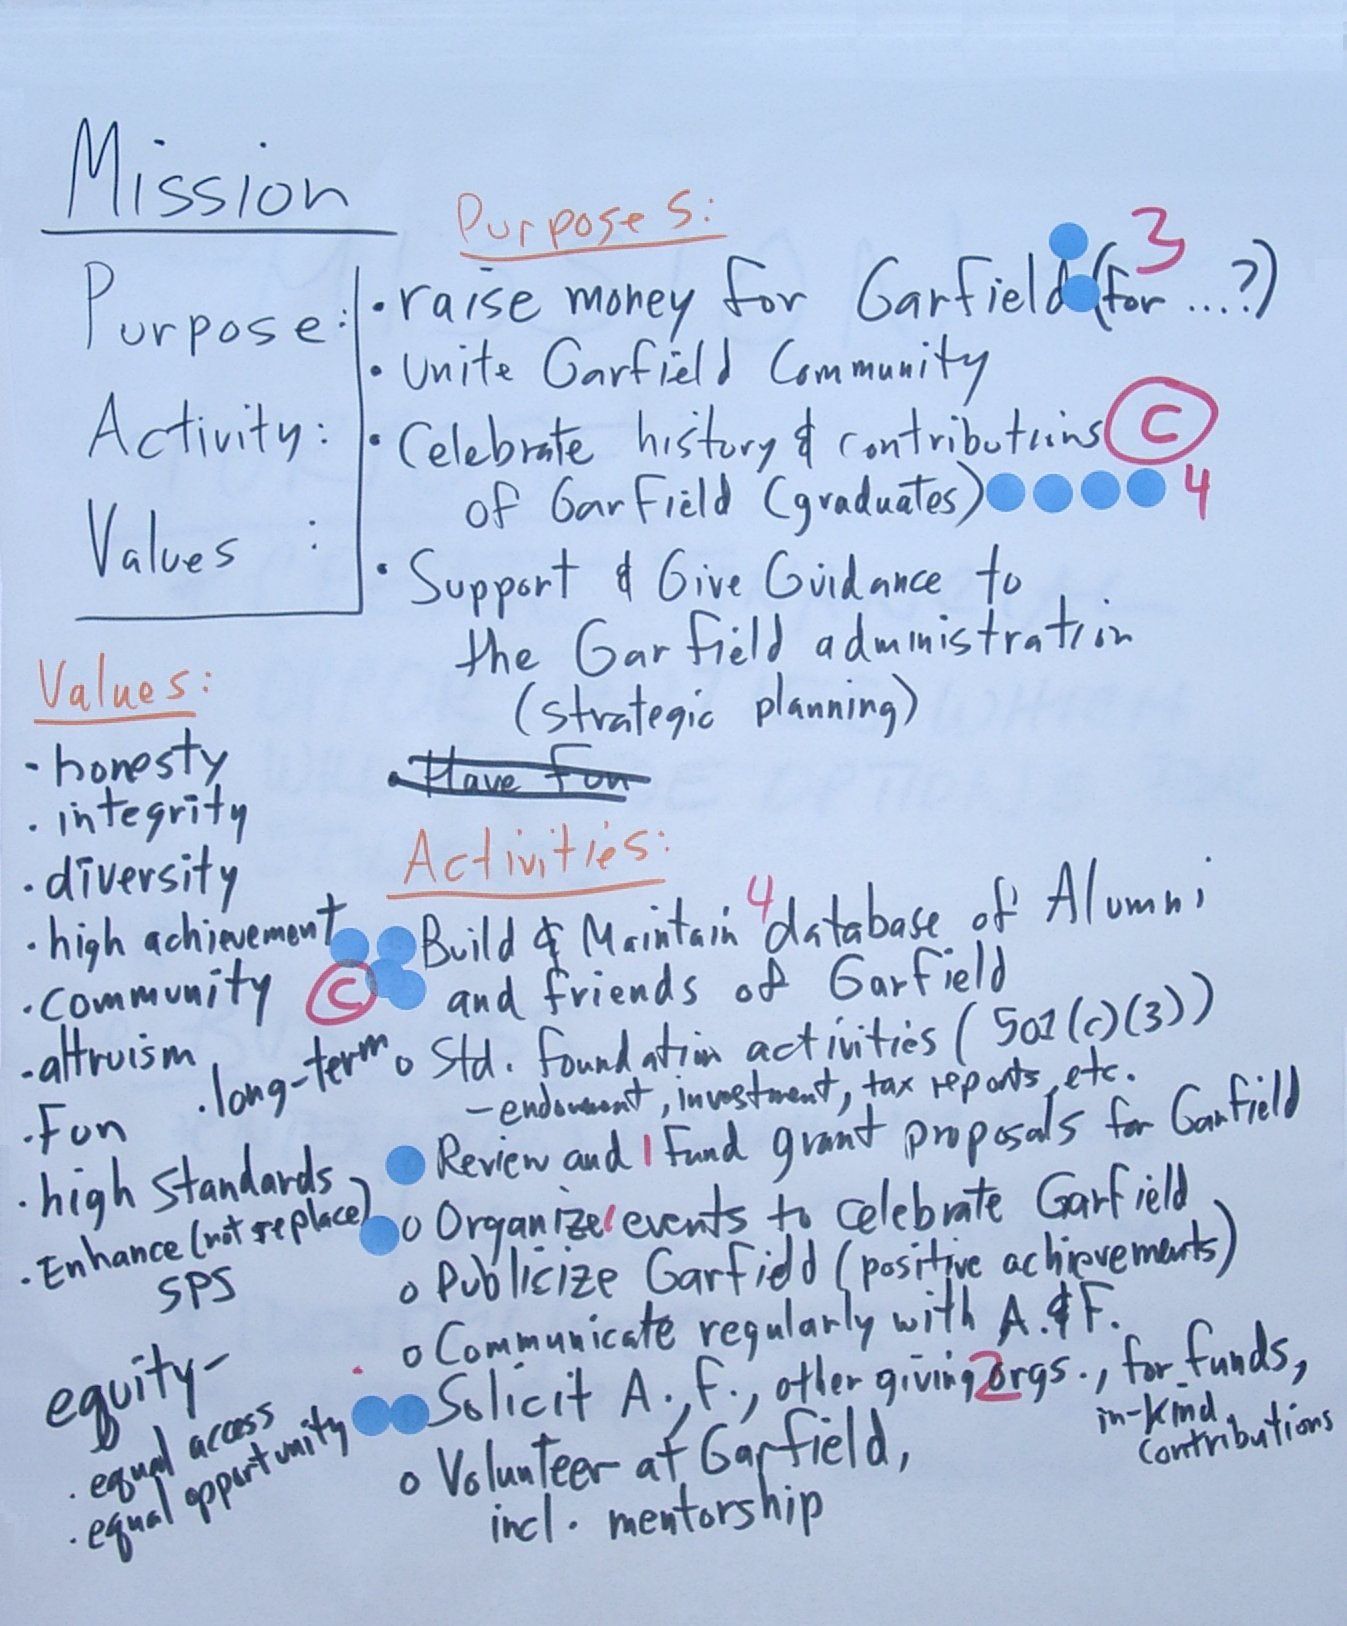 Mission
Purpose:
Activity:
Values :
Purposes:
• raise money for Garfield (for ...?) 3
• Unite Garfield Community
• Celebrate history & contributions C
of Garfield (graduates) 4
• Support & Give Guidance to
the Garfield administration
(strategic planning)
• Have Fun
Values:
- honesty
. integrity
. diversity
. high achievement
. Community C
. altruism
. long-term
. Fun
. high standards
. Enhance (not replace)
SPS
equity-
. equal access
. equal opportunity
Activities:
Build & Maintain 4 database of Alumni
and friends of Garfield
o Std. foundation activities (501(c)(3))
- endowment, investment, tax reports, etc.
Review and 1 Fund grant proposals for Garfield
o Organize 1 events to celebrate Garfield
o Publicize Garfield (positive achievements)
o Communicate regularly with A. & F.
Solicit A., F., other giving 2 orgs., for funds,
in-kind
contributions
o Volunteer at Garfield,
incl. mentorship